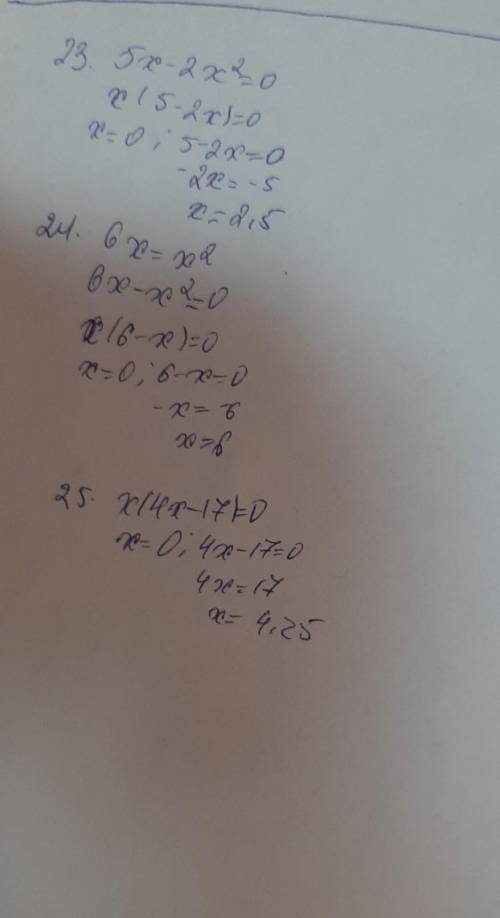 23. 5x-2x²=0
x(5-2x)=0
x=0; 5-2x=0
-2x=-5
x=2,5
24. 6x=x²
6x-x²=0
x(6-x)=0
x=0; 6-x=0
-x=-6
x=6
25. x(4x-17)=0
x=0; 4x-17=0
4x=17
x=4,25